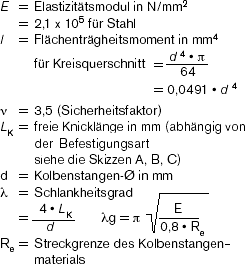 E = Elastizitätsmodul in N/mm²
= 2,1 x 10⁵ für Stahl
I = Flächenträgheitsmoment in mm⁴
für Kreisquerschnitt = d⁴ • π / 64
= 0,0491 • d⁴
ν = 3,5 (Sicherheitsfaktor)
L_K = freie Knicklänge in mm (abhängig von
der Befestigungsart
siehe die Skizzen A, B, C)
d = Kolbenstangen-Ø in mm
λ = Schlankheitsgrad
= 4 • L_K / d λg = π √(E / 0,8 • R_e)
R_e = Streckgrenze des Kolbenstangen–
materials